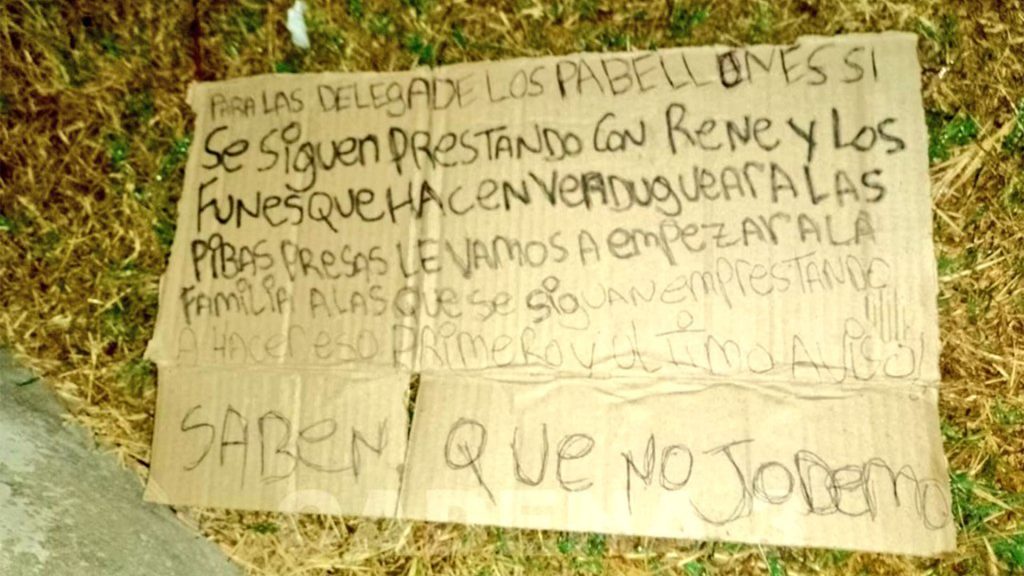 PARA LAS DELEGADE LOS PABELLONES SI
Se Siguen PRESTANDO CON RENE Y LOS
FUNES QUE HACEN VERDUGUEAR A LAS
PIBAS PRESAS LE VAMOS A empezar A LA
FAMILIA A LAS QUE Se SIGUAN emPRESTANDO
A HACER ESO PRIMERO Y ULTIMO AVISO
SABEN QUE NO JODEMO